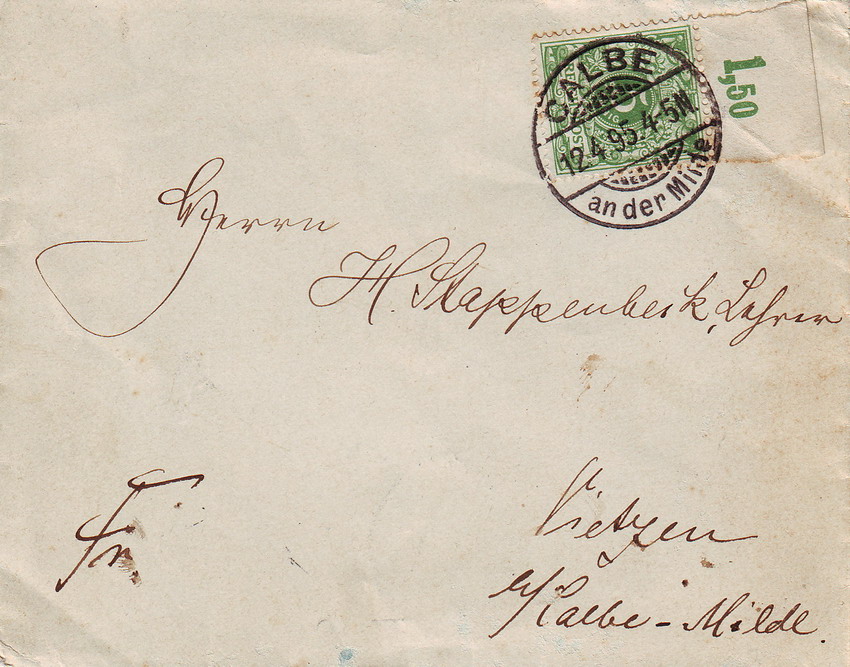 CALBE
12.4.95.4-5N
an der Milde
5
1,50
Herrn
H. Stappenbeck, Lehrer
Fr.
Vietzen
b/Kalbe-Milde.